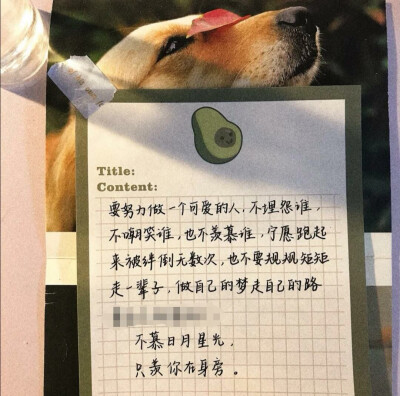 Title:
Content:
要努力做一个可爱的人,不埋怨谁,
不嘲笑谁,也不羡慕谁,宁愿跑起
来被绊倒无数次,也不要规规矩矩
走一辈子,做自己的梦走自己的路
不慕日月星光,
只羡你在身旁。